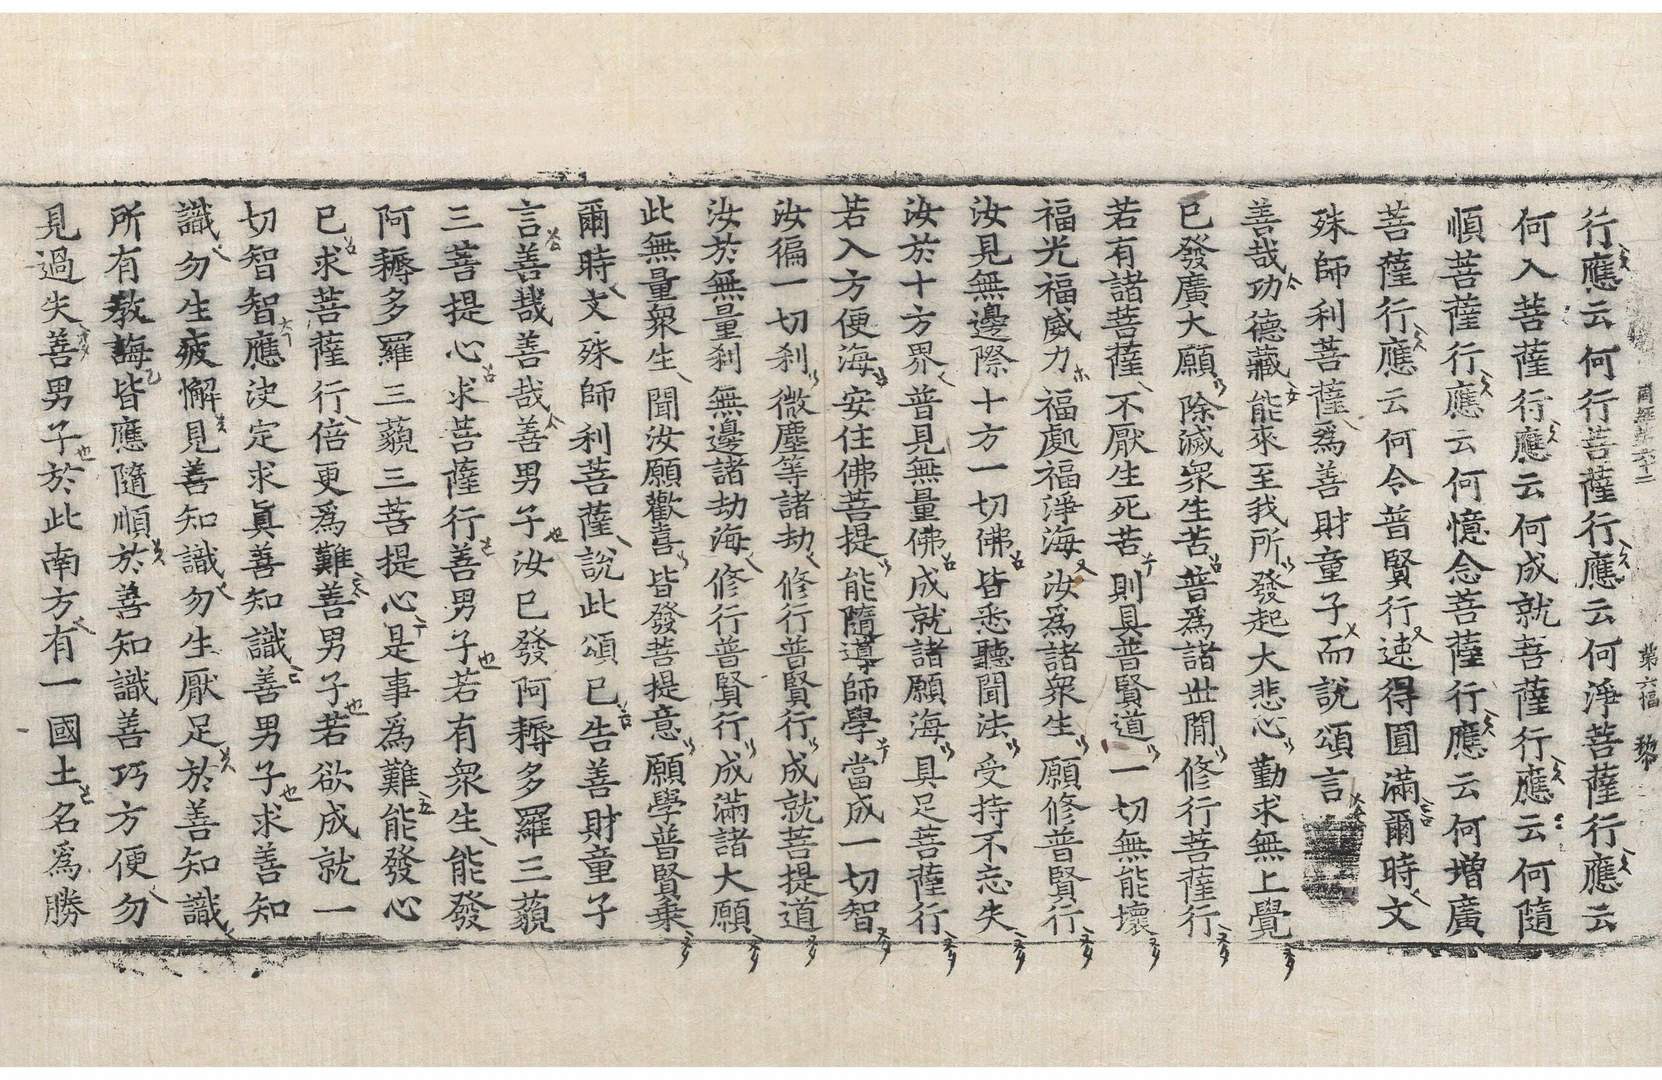 周經第六十二 第六幅
行應云何行菩薩行應云何淨菩薩行應云
何入菩薩行應云何成就菩薩行應云何隨
順菩薩行應云何憶念菩薩行應云何增廣
菩薩行應云何令普賢行速得圓滿爾時文
殊師利菩薩爲善財童子而說頌言
善哉功德藏能來至我所發起大悲心勤求無上覺
已發廣大願除滅衆生苦普爲諸世間修行菩薩行
若有諸菩薩不厭生死苦則具普賢道一切無能壞
福光福威力福處福淨海汝爲諸衆生願修普賢行
汝見無邊際十方一切佛皆悉聽聞法受持不忘失
汝於十方界普見無量佛成就諸願海具足菩薩行
若入方便海安住佛菩提能隨導師學當成一切智
汝徧一切刹微塵等諸劫修行普賢行成就菩提道
汝於無量刹無邊諸劫海修行普賢行成滿諸大願
此無量衆生聞汝願歡喜皆發菩提意願學普賢乘
爾時文殊師利菩薩說此頌已告善財童子
言善哉善哉善男子汝已發阿耨多羅三藐
三菩提心求菩薩行善男子若有衆生能發
阿耨多羅三藐三菩提心是事爲難能發心
已求菩薩行倍更爲難善男子若欲成就一
切智智應決定求眞善知識善男子求善知
識勿生疲懈見善知識勿生厭足於善知識
所有教誨皆應隨順於善知識善巧方便勿
見過失善男子於此南方有一國土名爲勝